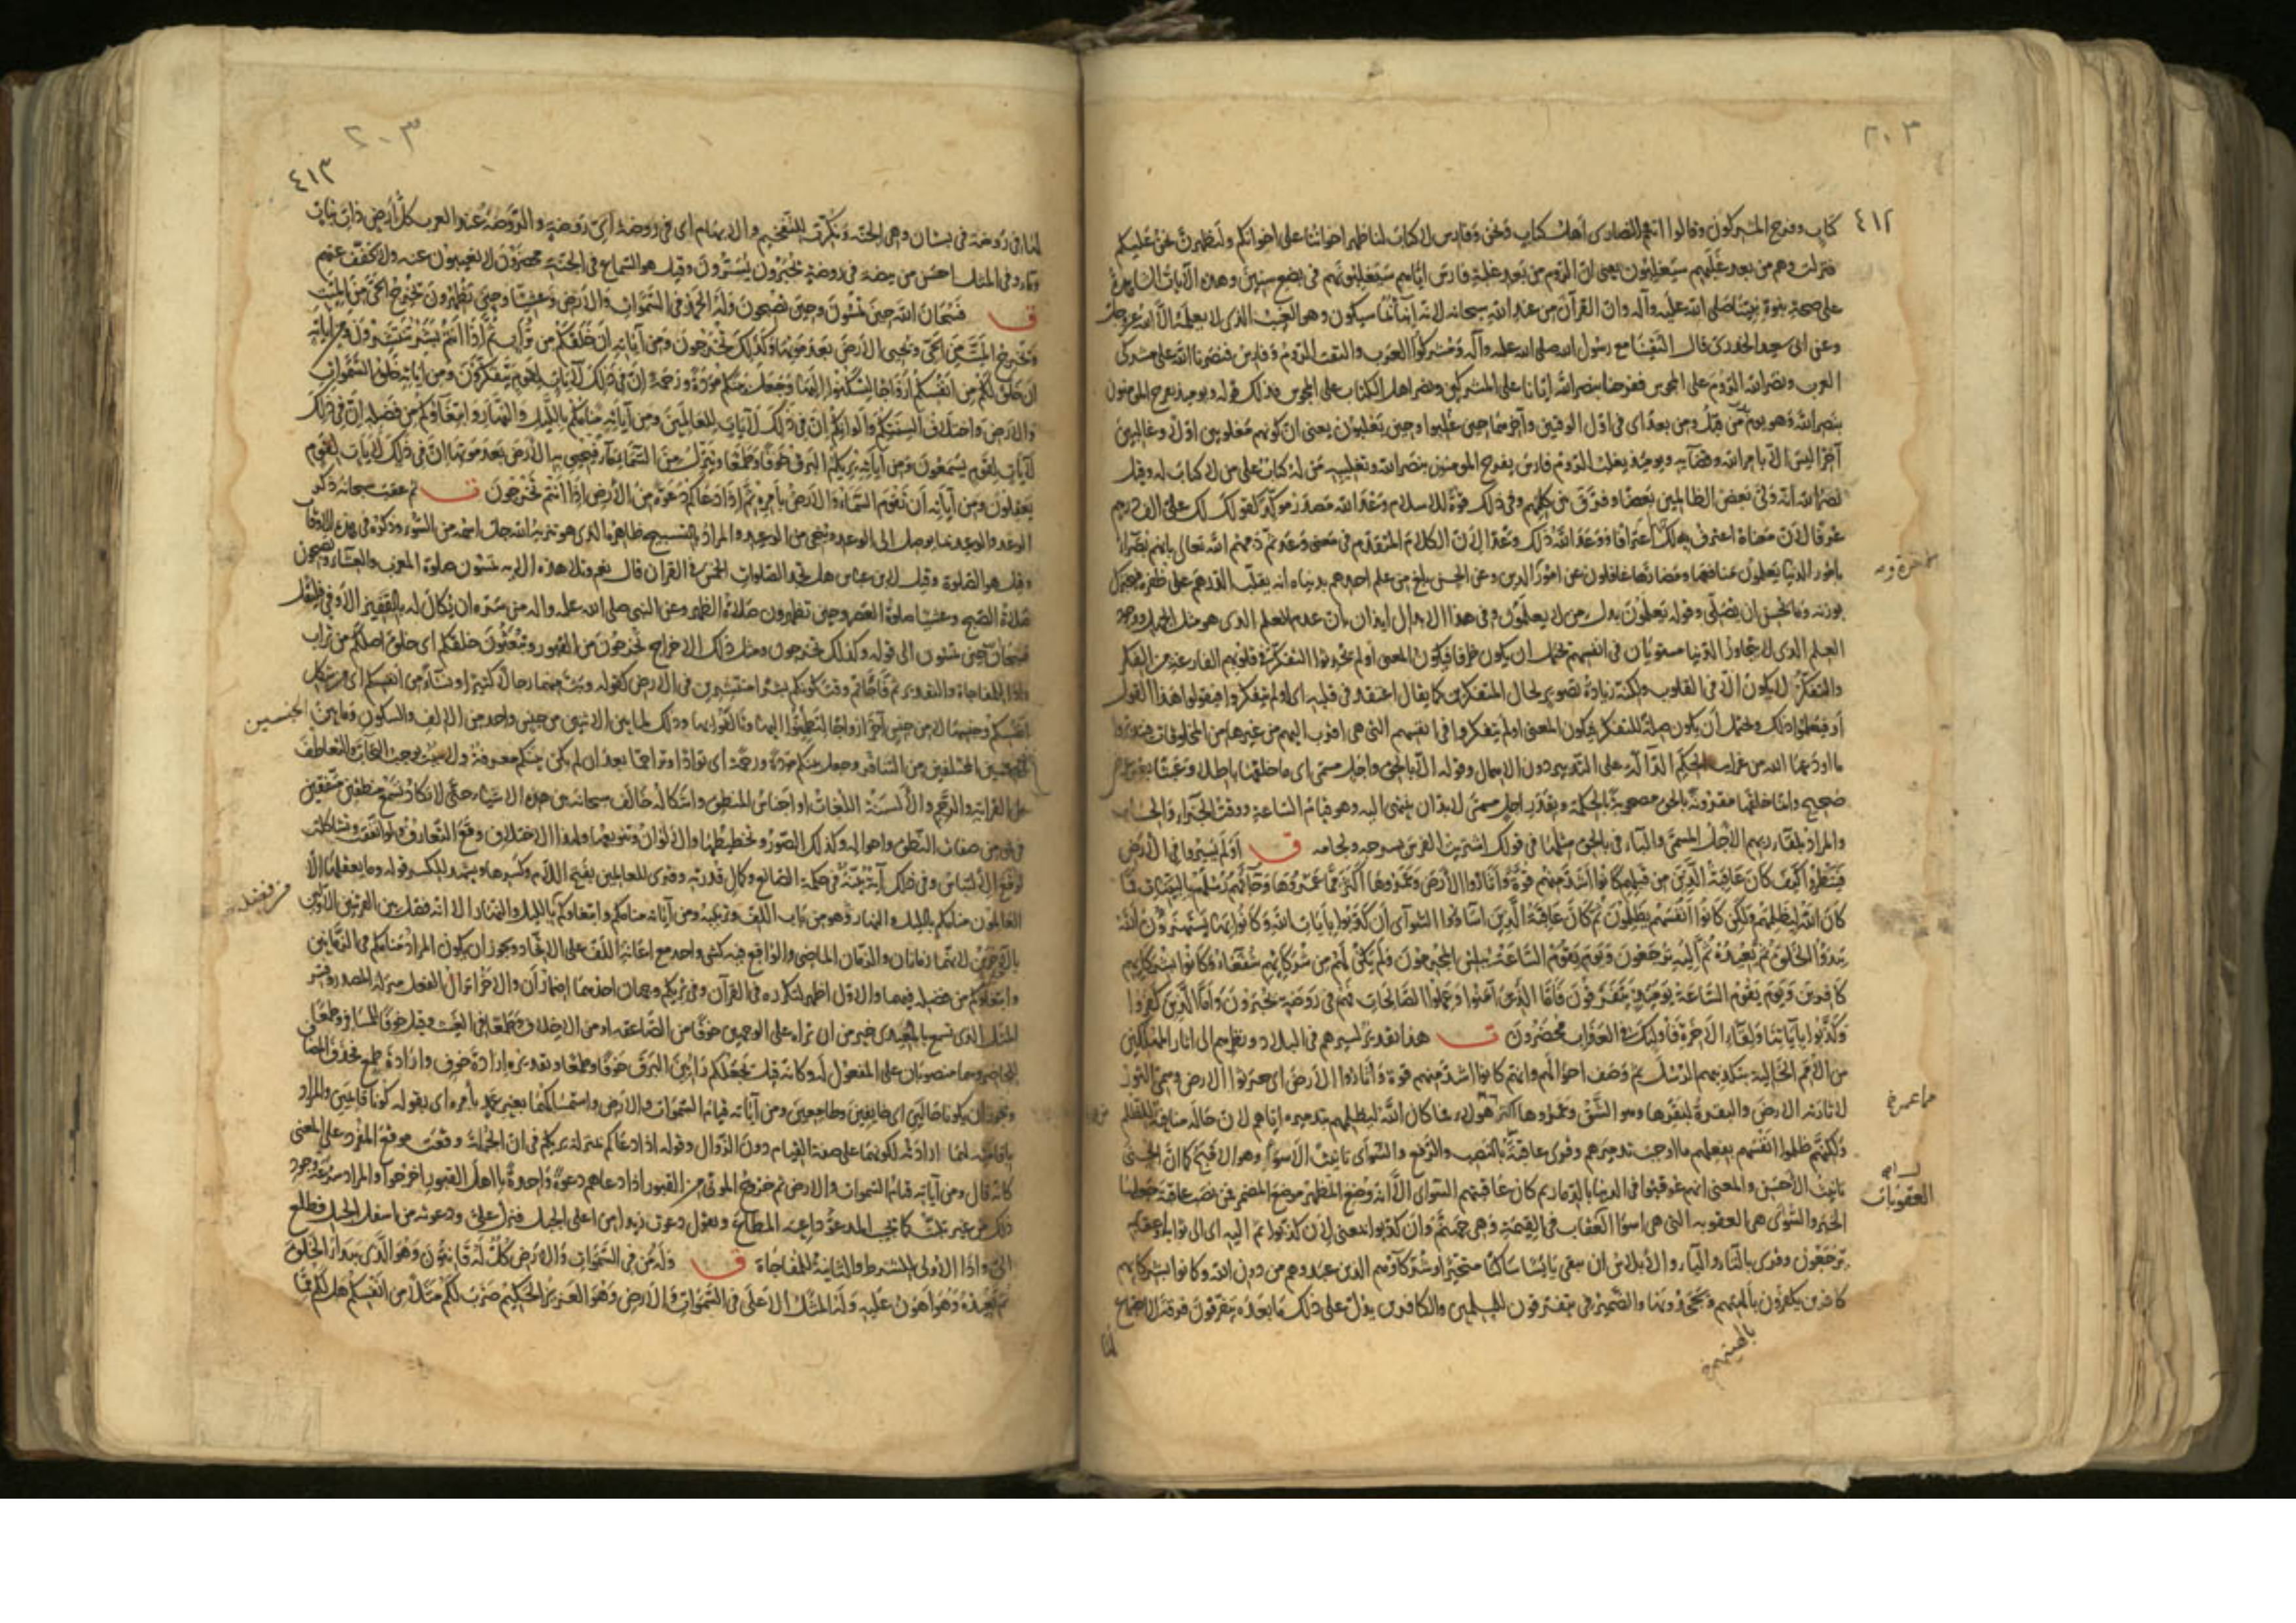 ٢٠٣
٤١٢
كتاب وفرح المشركون وقالوا انتم والنصارى أهل كتاب ونحن وفارس لا كتاب لنا ظهر اخواننا على اخوانكم ولنظهرن نحن عليكم
فنزلت وهم من بعد غلبهم سيغلبون يعنى ان الروم من بعد غلبة فارس اياهم سيغلبونهم فى بضع سنين وهذه الآيات الشاهدة
على صحة نبوة نبينا صلى الله عليه وآله وان القرآن من عند الله سبحانه لانه انبأنا بما سيكون وهو الغيب الذى لا يعلمه الا الله عز وجل
وعن ابى سعيد الخدرى قال التقينا مع رسول الله صلى الله عليه وآله ومشركوا العرب والتقت الروم وفارس فنصرنا الله على مشركى
العرب ونصر الله الروم على المجوس ففرحنا بنصر الله ايانا على المشركين ونصر اهل الكتاب على المجوس فذلك قوله ويومئذ يفرح المؤمنون
بنصر الله وهو يوم من قبل ومن بعد اى فى اول الوقتين وآخرهما حين غلبوا وحين يغلبون يعنى ان كونهم مغلوبين اولا وغالبين
آخرا ليس الا بامر الله وقضائه ويومئذ يغلب الروم فارس يفرح المؤمنون بنصر الله وتغليبه من له كتاب على من لا كتاب له وقيل
نصر الله انه ولى بعض الظالمين بعضا وفرق بين كلمهم وفى ذلك قوة للاسلام وعد الله مصدر مؤكد كقولك لك على الف درهم
عرفا لان معناه اعترفت لك بها اعترافا ووعد الله ذلك وعدا لان الكلام المتقدم فى معنى وعد ثم ذمهم الله تعالى بانهم بصراء
بامور الدنيا يعلمون منافعها ومضارها غافلون عن امور الدين وعن الحسن بلغ من علم احدهم بدنياه انه يقلب الدرهم على ظفره فيخبرك
بوزنه وما يحسن ان يصلى وقوله يعلمون بدل من لا يعلمون وفى هذا الابدال ايذان بان عدم العلم الذى هو مثل الجهل ووجود
العلم الذى لا يتجاوز الدنيا مستويان فى انفسهم يحتمل ان يكون ظرفا فيكون المعنى أولم يحدثوا التفكر فى قلوبهم الفارغة من الفكر
والتفكر لا يكون الا فى القلوب ولكنه زيادة تصوير لحال المتفكرين كما يقال اعتقد فى قلبه اى اولم يتفكروا فيقولوا هذا القول
أو فيعلموا ذلك ويحتمل أن يكون صلة للتفكر فيكون المعنى اولم يتفكروا فى انفسهم التى هى اقرب اليهم من غيرها من المخلوقات فيتدبروا
ما اودعها الله من غرائب الحكم الدالة على التدبير دون الاهمال وقوله الا بالحق واجل مسمى اى ما خلقها باطلا وعبثا بغير غرض
صحيح وانما خلقها مقرونة بالحق مصحوبة بالحكمة وبتقدير اجل مسمى لا بد ان ينتهى اليه وهو قيام الساعة ووقت الجزاء والحساب
والمراد بلقاء ربهم الأجل المسمى والباء فى بالحق مثلها فى قولك اشتريت الفرس بسرجه ولجامه ق أولم يسيروا فى الأرض
فينظروا كيف كان عاقبة الذين من قبلهم كانوا أشد منهم قوة وأثاروا الأرض وعمروها أكثر مما عمروها وجائتهم رسلهم بالبينات فما
كان الله ليظلمهم ولكن كانوا أنفسهم يظلمون ثم كان عاقبة الذين أساؤا السوآى أن كذبوا بآيات الله وكانوا بها يستهزؤن الله
يبدؤا الخلق ثم يعيده ثم إليه ترجعون ويوم تقوم الساعة يبلس المجرمون ولم يكن لهم من شركائهم شفعاء وكانوا بشركائهم
كافرين ويوم تقوم الساعة يومئذ يتفرقون فأما الذين آمنوا وعملوا الصالحات فهم فى روضة يحبرون وأما الذين كفروا
وكذبوا بآياتنا ولقاء الآخرة فأولئك فى العذاب محضرون ت هذا تقدير لسيرهم فى البلاد ونظرهم الى اثار المهلكين
من الأمم الخالية بتكذيبهم الرسل ثم وصف احوالهم وانهم كانوا اشد منهم قوة وأثاروا الأرض اى حرثوا الارض وسمى الثور
لاثارته الارض والبقرة لبقرها وهو الشق وعمروها اكثر هؤلاء فما كان الله ليظلمهم بتدميره اياهم لان حاله منافية للظلم
ولكنهم ظلموا انفسهم بفعلهم ما اوجب تدميرهم وقرئ عاقبة بالنصب والرفع والسوآى تانيث الاسوأ وهو الاقبح كما ان الحسنى
تانيث الأحسن والمعنى انهم عوقبوا فى الدنيا بالدمار ثم كان عاقبتهم السوآى الا انه وضع المظهر موضع المضمر فمن نصب عاقبة جعلها
الخبر والسوآى هى العقوبه التى هى اسوأ العقاب فى القيمة وهى جهنم وان كذبوا بمعنى لان كذبوا ثم اليه اى الى ثوابه وعقابه
ترجعون وقرئ بالتاء والياء والابلاس ان يبقى يائسا ساكتا متحيرا وشركاؤهم الذين عبدوهم من دون الله وكانوا بشركائهم
كافرين يكفرون بآلهتهم ويجحدونها والضمير فى يتفرقون للمسلمين والكافرين يدل على ذلك ما بعده يتفرقون فرقة لا اجتماع
العقوبات
٢٠٣
٤١٣
لها فى روضة فى بستان وهى الجنة ونكرت للتفخيم والابهام اى فى روضة اى روضة والروضة عند العرب كل أرض ذات نبات
وماء وفى المثل احسن من بيضة فى روضة يحبرون يسرون وقيل هو السماع فى الجنة محضرون لا يغيبون عنه ولا يخفف عنهم
ق فسبحان الله حين تمسون وحين تصبحون وله الحمد فى السموات والأرض وعشيا وحين تظهرون يخرج الحى من الميت
ويخرج الميت من الحى ويحيى الأرض بعد موتها وكذلك تخرجون ومن آياته أن خلقكم من تراب ثم إذا أنتم بشر تنتشرون ومن آياته
أن خلق لكم من انفسكم أزواجا لتسكنوا إليها وجعل بينكم مودة ورحمة إن فى ذلك لآيات لقوم يتفكرون ومن آياته خلق السموات
والأرض واختلاف ألسنتكم وألوانكم إن فى ذلك لآيات للعالمين ومن آياته منامكم بالليل والنهار وابتغاؤكم من فضله إن فى ذلك
لآيات لقوم يسمعون ومن آياته يريكم البرق خوفا وطمعا وينزل من السماء ماء فيحيى به الأرض بعد موتها إن فى ذلك لآيات لقوم
يعقلون ومن آياته أن تقوم السماء والأرض بأمره ثم إذا دعاكم دعوة من الأرض إذا أنتم تخرجون ت ثم عقب سبحانه ذكر
الوعد والوعيد بما يوصل الى الوعد وينجى من الوعيد والمراد بالتسبيح ظاهره الذى هو تنزيه الله جل اسمه من السوء وذكره فى هذه الاوقات
وقيل هو الصلوة وقيل لابن عباس هل تجد الصلوات الخمس فى القرآن قال نعم وتلا هذه الآيه تمسون صلوة المغرب والعشاء وتصبحون
صلاة الصبح وعشيا صلوة العصر وحين تظهرون صلاة الظهر وعن النبى صلى الله عليه واله من سره ان يكال له بالقفيز الأوفى فليقل
فسبحان الله حين تمسون الى قوله وكذلك تخرجون ومثل ذلك الاخراج تخرجون من القبور وتبعثون خلقكم اى خلق اصلكم من تراب
واذا للمفاجاة والتقدير ثم فاجأتم وقت كونكم بشرا منتشرين فى الارض كقوله وبث منهما رجالا كثيرا ونساء من انفسكم اى من شكل
انفسكم وجنسها لا من جنس آخر ازواجا لتطمئنوا اليها وتالفوا بها وذلك لما بين الاثنين من جنس واحد من الالف والسكون وما بين الجنسين
المختلفين من التنافر وجعل بينكم مودة ورحمة اى توادا وتراحما بعد ان لم يكن بينكم معرفة ولا سبب يوجب التحاب والتعاطف
من القرابة والرحم والألسنة اللغات او اجناس المنطق واشكاله خالف سبحانه بين هذه الاشياء حتى لا تكاد تسمع منطقين متفقين
فى شىء من صفات النطق واحواله وكذلك الصور وتخطيطها والألوان وتنويعها ولهذا الاختلاف وقع التعارف ولو اتفقت وتشاكلت
لوقع الالتباس وفى ذلك آية بينة فى حكمة الصانع وكمال قدرته وقرئ للعالمين بفتح اللام وكسرها ويشهد للكسر قوله وما يعقلها الا
العالمون منامكم بالليل والنهار وهو من باب اللف وترتيبه ومن آياته منامكم وابتغاؤكم بالليل والنهار الا انه فصل بين القرينين الاولين
بالآخرين لانهما زمانان والزمان الماضى والواقع فيه كشىء واحد مع اعانة اللف على الاتحاد ويجوز ان يكون المراد منامكم فى الزمانين
وابتغاؤكم من فضله فيهما والاول اظهر لتكرره فى القرآن وفى يريكم وجهان احدهما اضمار أن والآخر انزال الفعل منزلة المصدر وفسر
المثل الذى تسمع بالمعيدى خير من ان تراه على الوجهين خوفا من الصاعقه او من الاخلاف وطمعا فى الغيث وقيل خوفا للمسافر وطمعا
للحاضر وهما منصوبان على المفعول له وكانه قيل يجعلكم رائين البرق خوفا وطمعا وتقديره ارادة خوف وارادة طمع فحذف المضاف
ويجوز ان يكونا حالين اى خائفين وطامعين ومن آياته قيام السموات والأرض واستمساكها بغير عمد بأمره اى بقوله كونا قائمين والمراد
باقامته لهما ارادته لكونهما على صفة القيام دون الزوال وقوله اذا دعاكم بمنزلة يريكم فى ان الجملة وقعت موقع المفرد على المعنى
كانه قال ومن آياته قيام السموات والارض ثم خروج الموتى من القبور اذا دعاهم دعوة واحدة يا اهل القبور اخرجوا والمراد سرعة وجود
ذلك من غير تلبث كما يجيب المدعو داعيه المطاع ويقول دعوت زيدا من اعلى الجبل فنزل على ودعوته من اسفل الجبل فطلع
الى واذا الاولى للشرط والثانية للمفاجاة ق وله من فى السموات والارض كل له قانتون وهو الذى يبدؤ الخلق
ثم يعيده وهو اهون عليه وله المثل الاعلى فى السموات والارض وهو العزيز الحكيم ضرب لكم مثلا من انفسكم هل لكم مما
الجنسين